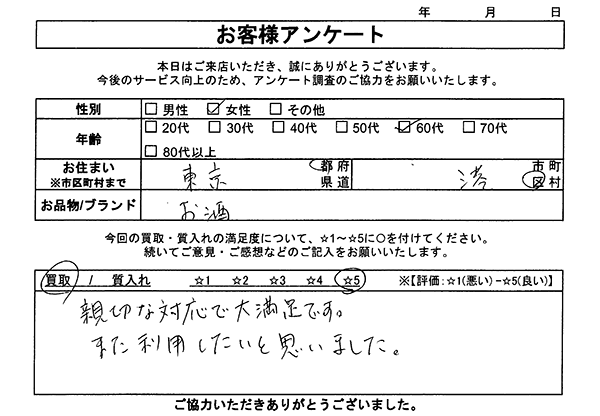 年 月 日
お客様アンケート
本日はご来店いただき、誠にありがとうございます。
今後のサービス向上のため、アンケート調査のご協力をお願いいたします。
性別 □ 男性 ☑ 女性 □ その他
年齢 □ 20代 □ 30代 □ 40代 □ 50代 ☑ 60代 □ 70代
□ 80代以上
お住まい 東京 都府 港 市町
※市区町村まで 県道 区村
お品物/ブランド お酒
今回の買取・質入れの満足度について、☆1～☆5に○を付けてください。
続いてご意見・ご感想などのご記入をお願いいたします。
買取 / 質入れ ☆1 ☆2 ☆3 ☆4 ☆5 ※【評価:☆1(悪い)-☆5(良い)】
親切な対応で大満足です。
また利用したいと思いました。
ご協力いただきありがとうございました。